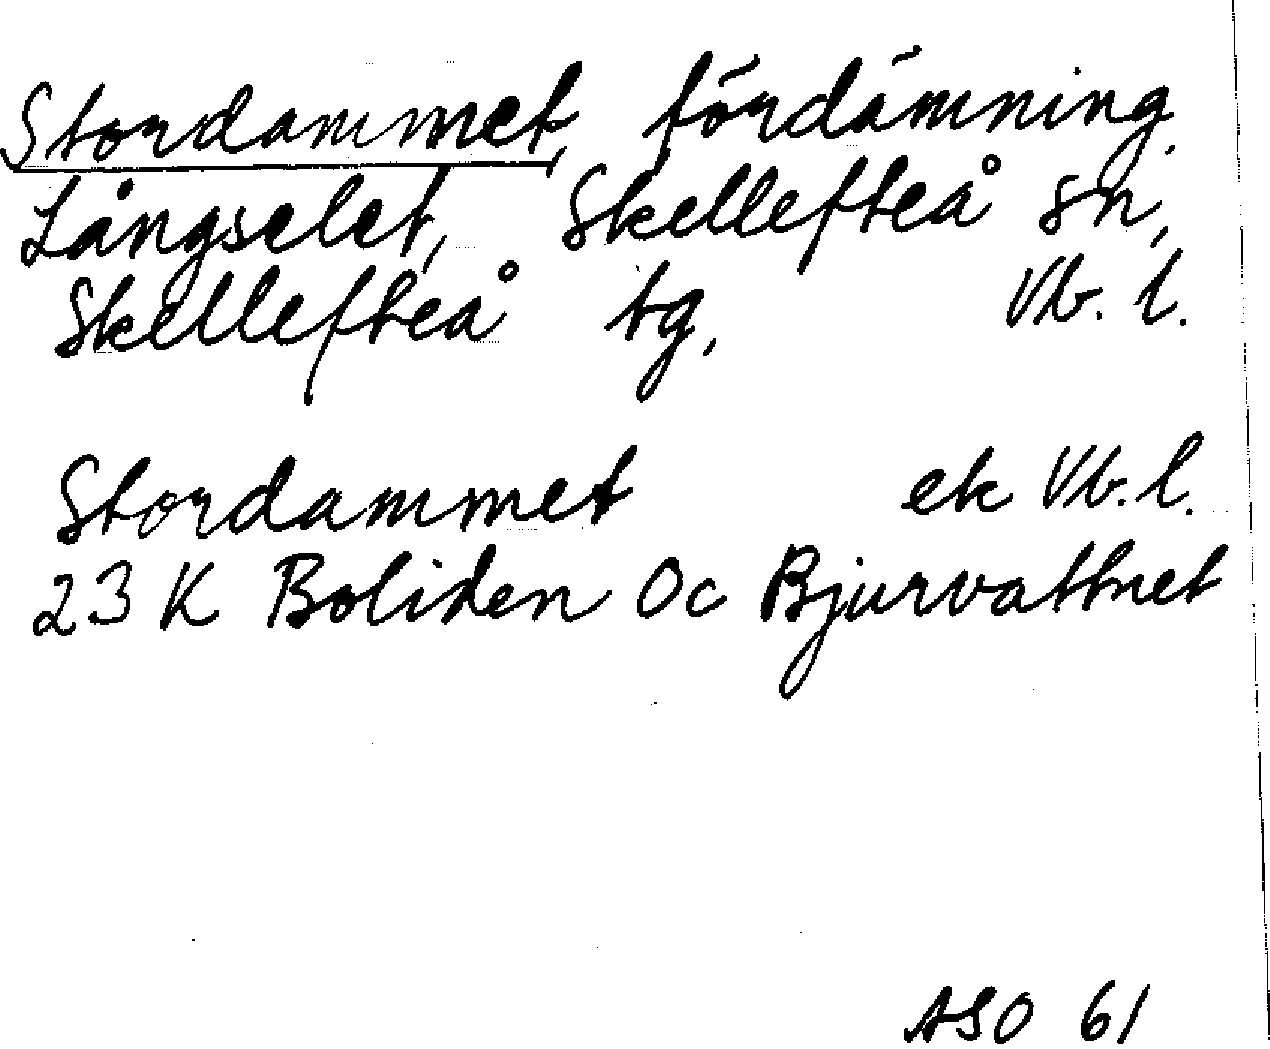 Stordammet, fördämning,
Långselet, Skellefteå sn,
Skellefteå tg, Vb. l.
Stordammet ek Vb. l.
23 K Boliden Oc Bjurvattnet
ASO 61